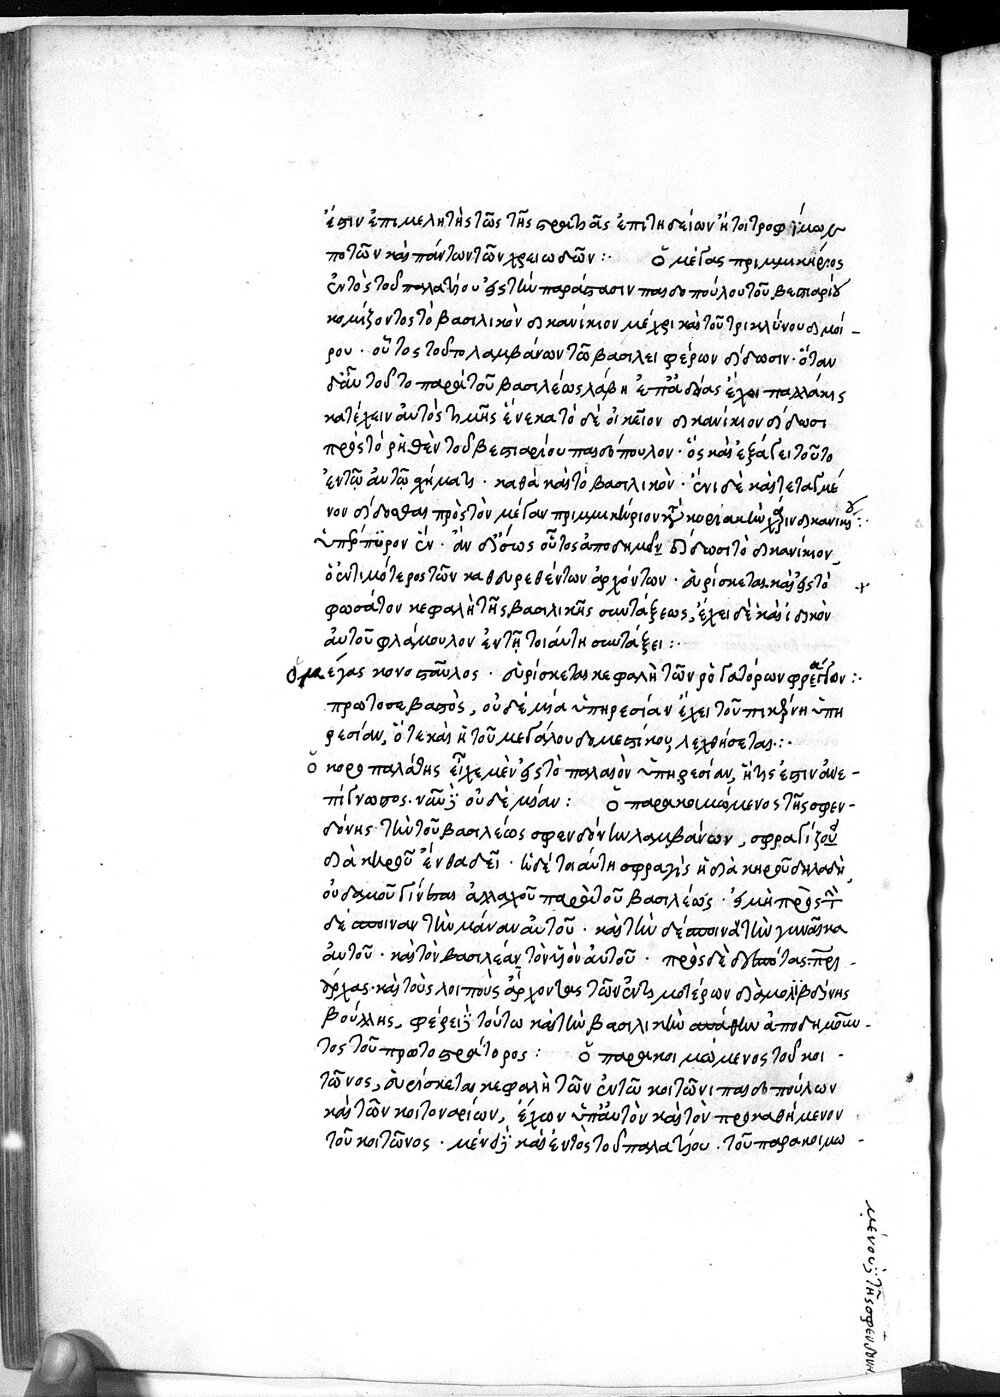 ἐστιν ἐπιμελητὴς τῶν τῆς στρατιᾶς ἐπιτηδείων ἤτοι τροφίμων
ποτῶν καὶ πάντων τῶν χρειωδῶν :· ὁ μέγας πριμμικήριος
ἐντὸς τοῦ παλατίου εἰς τὴν παράστασιν παιδοπούλου τοῦ βεστιαρίου
κομίζοντος τὸ βασιλικὸν δικανίκιον μέχρι καὶ τοῦ τρικλίνου δι μοί-
ρου · οὗτος τοῦτο λαμβάνων τῶ βασιλεῖ φέρων δίδωσιν · ὅταν
δ' αὖ τοῦτο παρὰ τοῦ βασιλέως λάβη ἐπ' ἀδείας ἔχει πολλάκις
κατέχειν αὐτὸς τιμῆς ἕνεκα τὸ δὲ οἰκεῖον δικανίκιον δίδωσι
πρὸς τὸ ῥηθὲν τοῦ βεστιαρίου παιδόπουλον · ὃς καὶ ἐξάγει τοῦτο
ἐν τῷ αὐτῷ σχήματι · καθὰ καὶ τὸ βασιλικὸν · ἔνι δὲ καὶ τεταγμέ
νον δίδοσθαι πρὸς τὸν μέγαν πριμμικήριον κατὰ κυριακὴν χάριν δικανικίου :·
ὑπέρπυρον ἓν · ἂν δ' ἴσως οὗτος ἀποδημῶν δίδωσι τὸ δικανίκιον
ὁ ἐντιμότερος τῶν καθευρεθέντων ἀρχόντων · εὑρίσκεται καὶ εἰς τὸ
φωσάτον κεφαλὴ τῆς βασιλικῆς συντάξεως, ἔχει δὲ καὶ ἰδικὸν
αὐτοῦ φλάμουλον ἐν τῇ τοιαύτη συντάξει :·
ὁ μέγας κονοσταῦλος · εὑρίσκεται κεφαλὴ τῶν ῥογατόρων φράγγων :·
πρωτοσεβαστὸς, οὐδεμία ὑπηρεσίαν ἔχει τοῦ πικέρνη ὑπη
ρεσίαν, ὅτε καὶ ἡ τοῦ μεγάλου δομεστίκου, λεχθήσεται :·
ὁ κοροπαλάτης εἶχε μὲν εἰς τὸ παλαιὸν ὑπηρεσίαν, ἥτις ἐστιν ἀνε-
πίγνωστος · νῦν δὲ οὐδεμίαν : ὁ παρακοιμώμενος τῆς σφεν-
δόνης τὴν τοῦ βασιλέως σφενδόνην λαμβάνων, σφραγίζουσα
διὰ κηροῦ ἔνθα δεῖ · ἡ δὲ τοιαύτη σφραγὶς ἡ διὰ κηροῦ δηλαδὴ,
οὐδαμοῦ γίνεται ἀλλαχοῦ παρὰ τοῦ βασιλέως · εἰ μὴ πρὸς τὴν
δέσποιναν τὴν μάναν αὐτοῦ · καὶ τὴν δέσποιναν τὴν γυναῖκα
αὐτοῦ · καὶ τὸν βασιλέαν τὸν υἱὸν αὐτοῦ · πρὸς δὲ δεσπότας πατρι-
άρχας · καὶ τοὺς λοιποὺς ἄρχοντας τῶν ἐντιμοτέρων διὰ μολιβδίνης
βούλλης, φέρει δὲ τούτω καὶ τὴν βασιλικὴν σπάθην ἀποδημοῦν-
τος τοῦ πρωτοστράτορος : ὁ παρακοιμώμενος τοῦ κοι-
τῶνος, εὑρίσκεται κεφαλὴ τῶν ἐν τῶ κοιτῶνι παιδοπούλων
καὶ τῶν κοιτοναρίων, ἔχων ὑπ' αὐτὸν καὶ τὸν προκαθήμενον
τοῦ κοιτῶνος · μένει δὲ καὶ ἐντὸς τοῦ παλατίου · τοῦ παρακοιμω-
μένου δὲ τῆς σφενδόνης